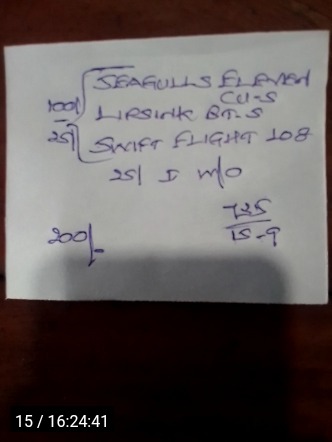 SEAGULLS ELEVEN
CU-S
100/ LIPSINK BT-S
25/ SWIFT FLIGHT 108
25/ I W/O
725
200/- 15-9
15 / 16:24:41